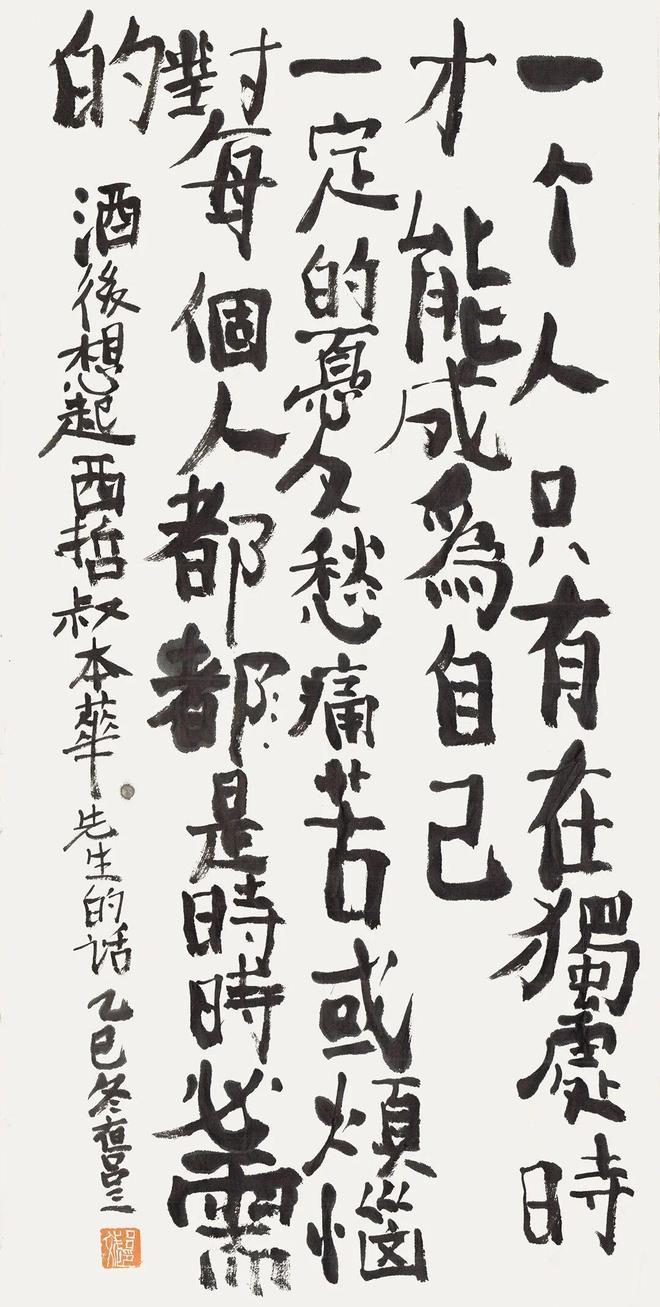 一个人只有在獨處時
才能成爲自己
一定的憂愁痛苦或煩惱
對每個人都都是時時必需
的
酒後想起西哲叔本華先生的话 乙巳冬夜吕三